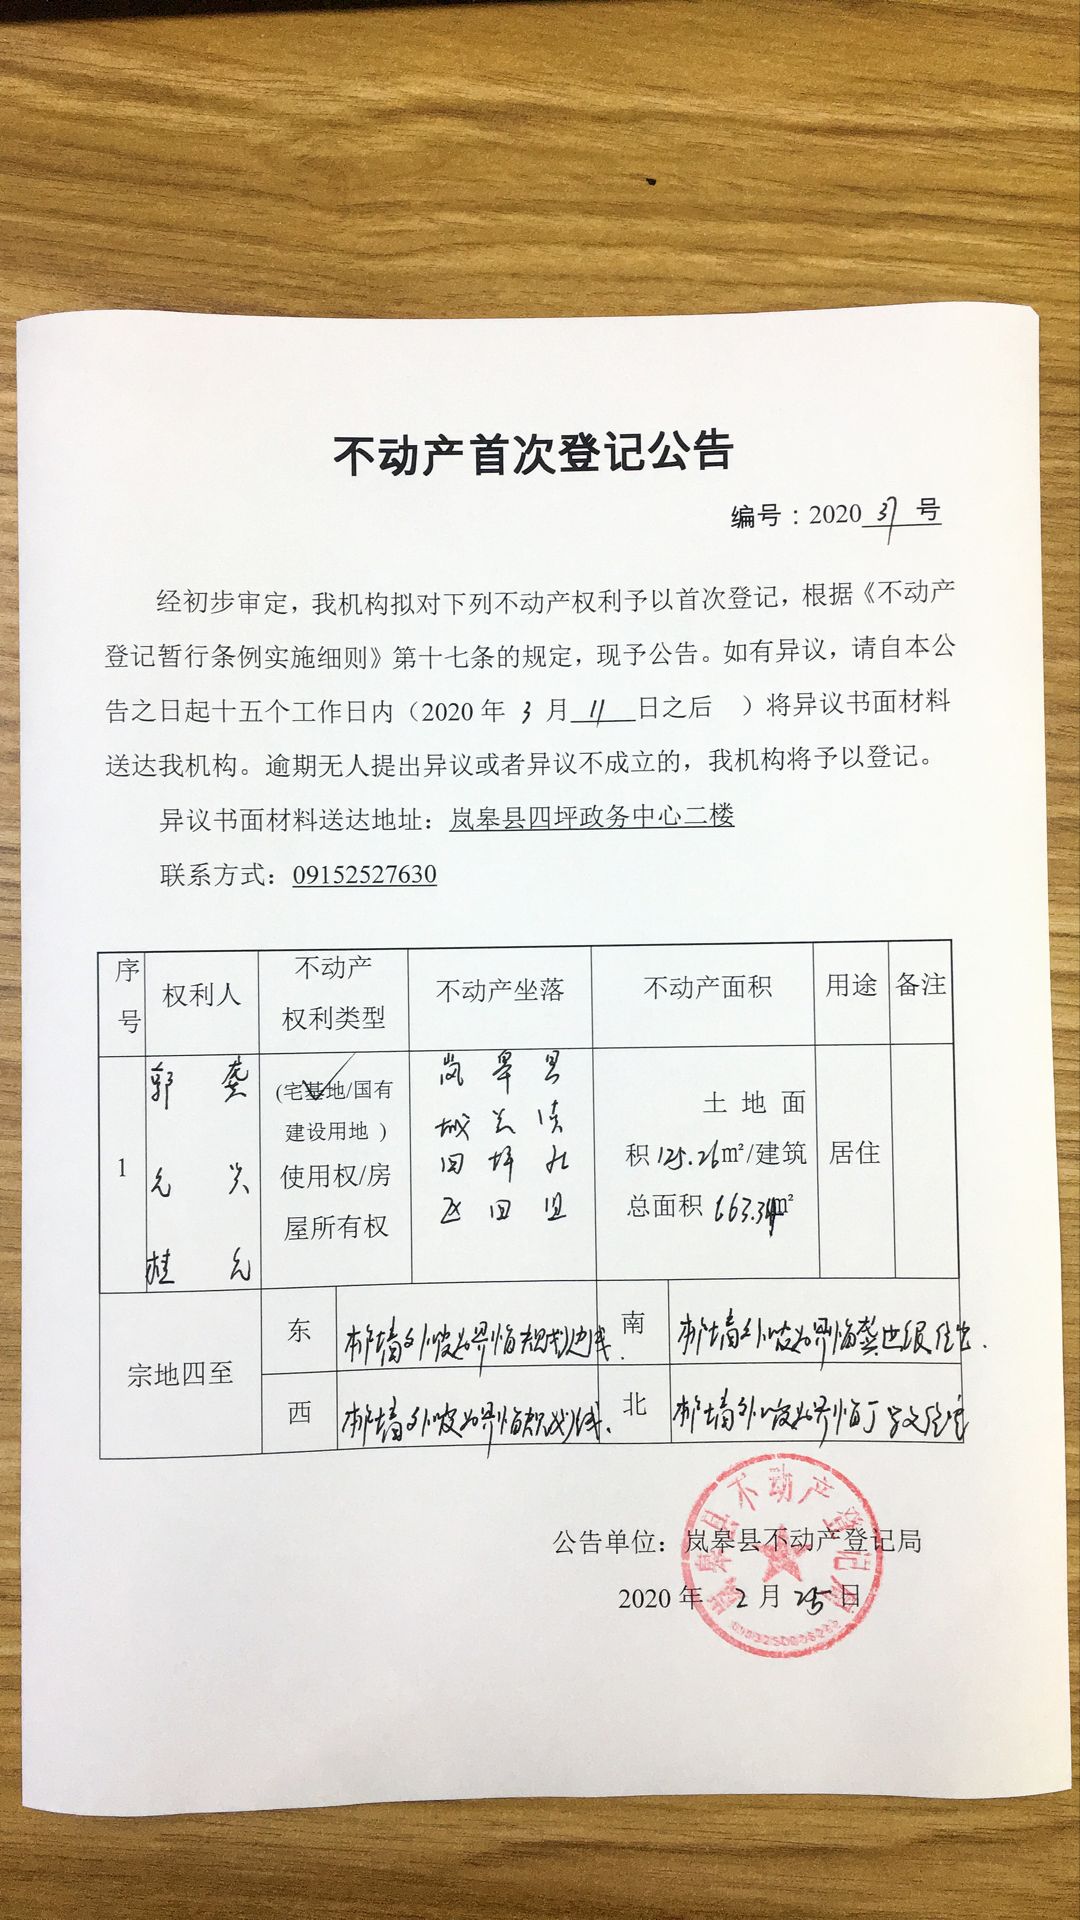 不动产首次登记公告
编号：2020 37 号
经初步审定，我机构拟对下列不动产权利予以首次登记，根据《不动产
登记暂行条例实施细则》第十七条的规定，现予公告。如有异议，请自本公
告之日起十五个工作日内（2020 年 3 月 11 日之后 ）将异议书面材料
送达我机构。逾期无人提出异议或者异议不成立的，我机构将予以登记。
异议书面材料送达地址：岚皋县四坪政务中心二楼
联系方式：09152527630
序号 权利人 不动产权利类型 不动产坐落 不动产面积 用途 备注
1
郭 龚
元 兴
桂 元
(宅基地/国有
建设用地 )
使用权/房
屋所有权
岚 皋 县
城 关 镇
四 坪 社
区 四 组
土 地 面
积 125.26㎡/建筑
总面积 663.34㎡
居住
宗地四至
东 墙外坡为界临规划边线.
南 墙外坡为界临龚世银住宅.
西 墙外坡为界临规划线.
北 墙外坡为界临丁 文住宅
公告单位：岚皋县不动产登记局
2020 年 2 月 25 日
岚皋县不动产登记局